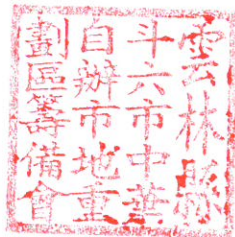 雲林縣
斗六市中華
自辦市地重
劃區籌備會